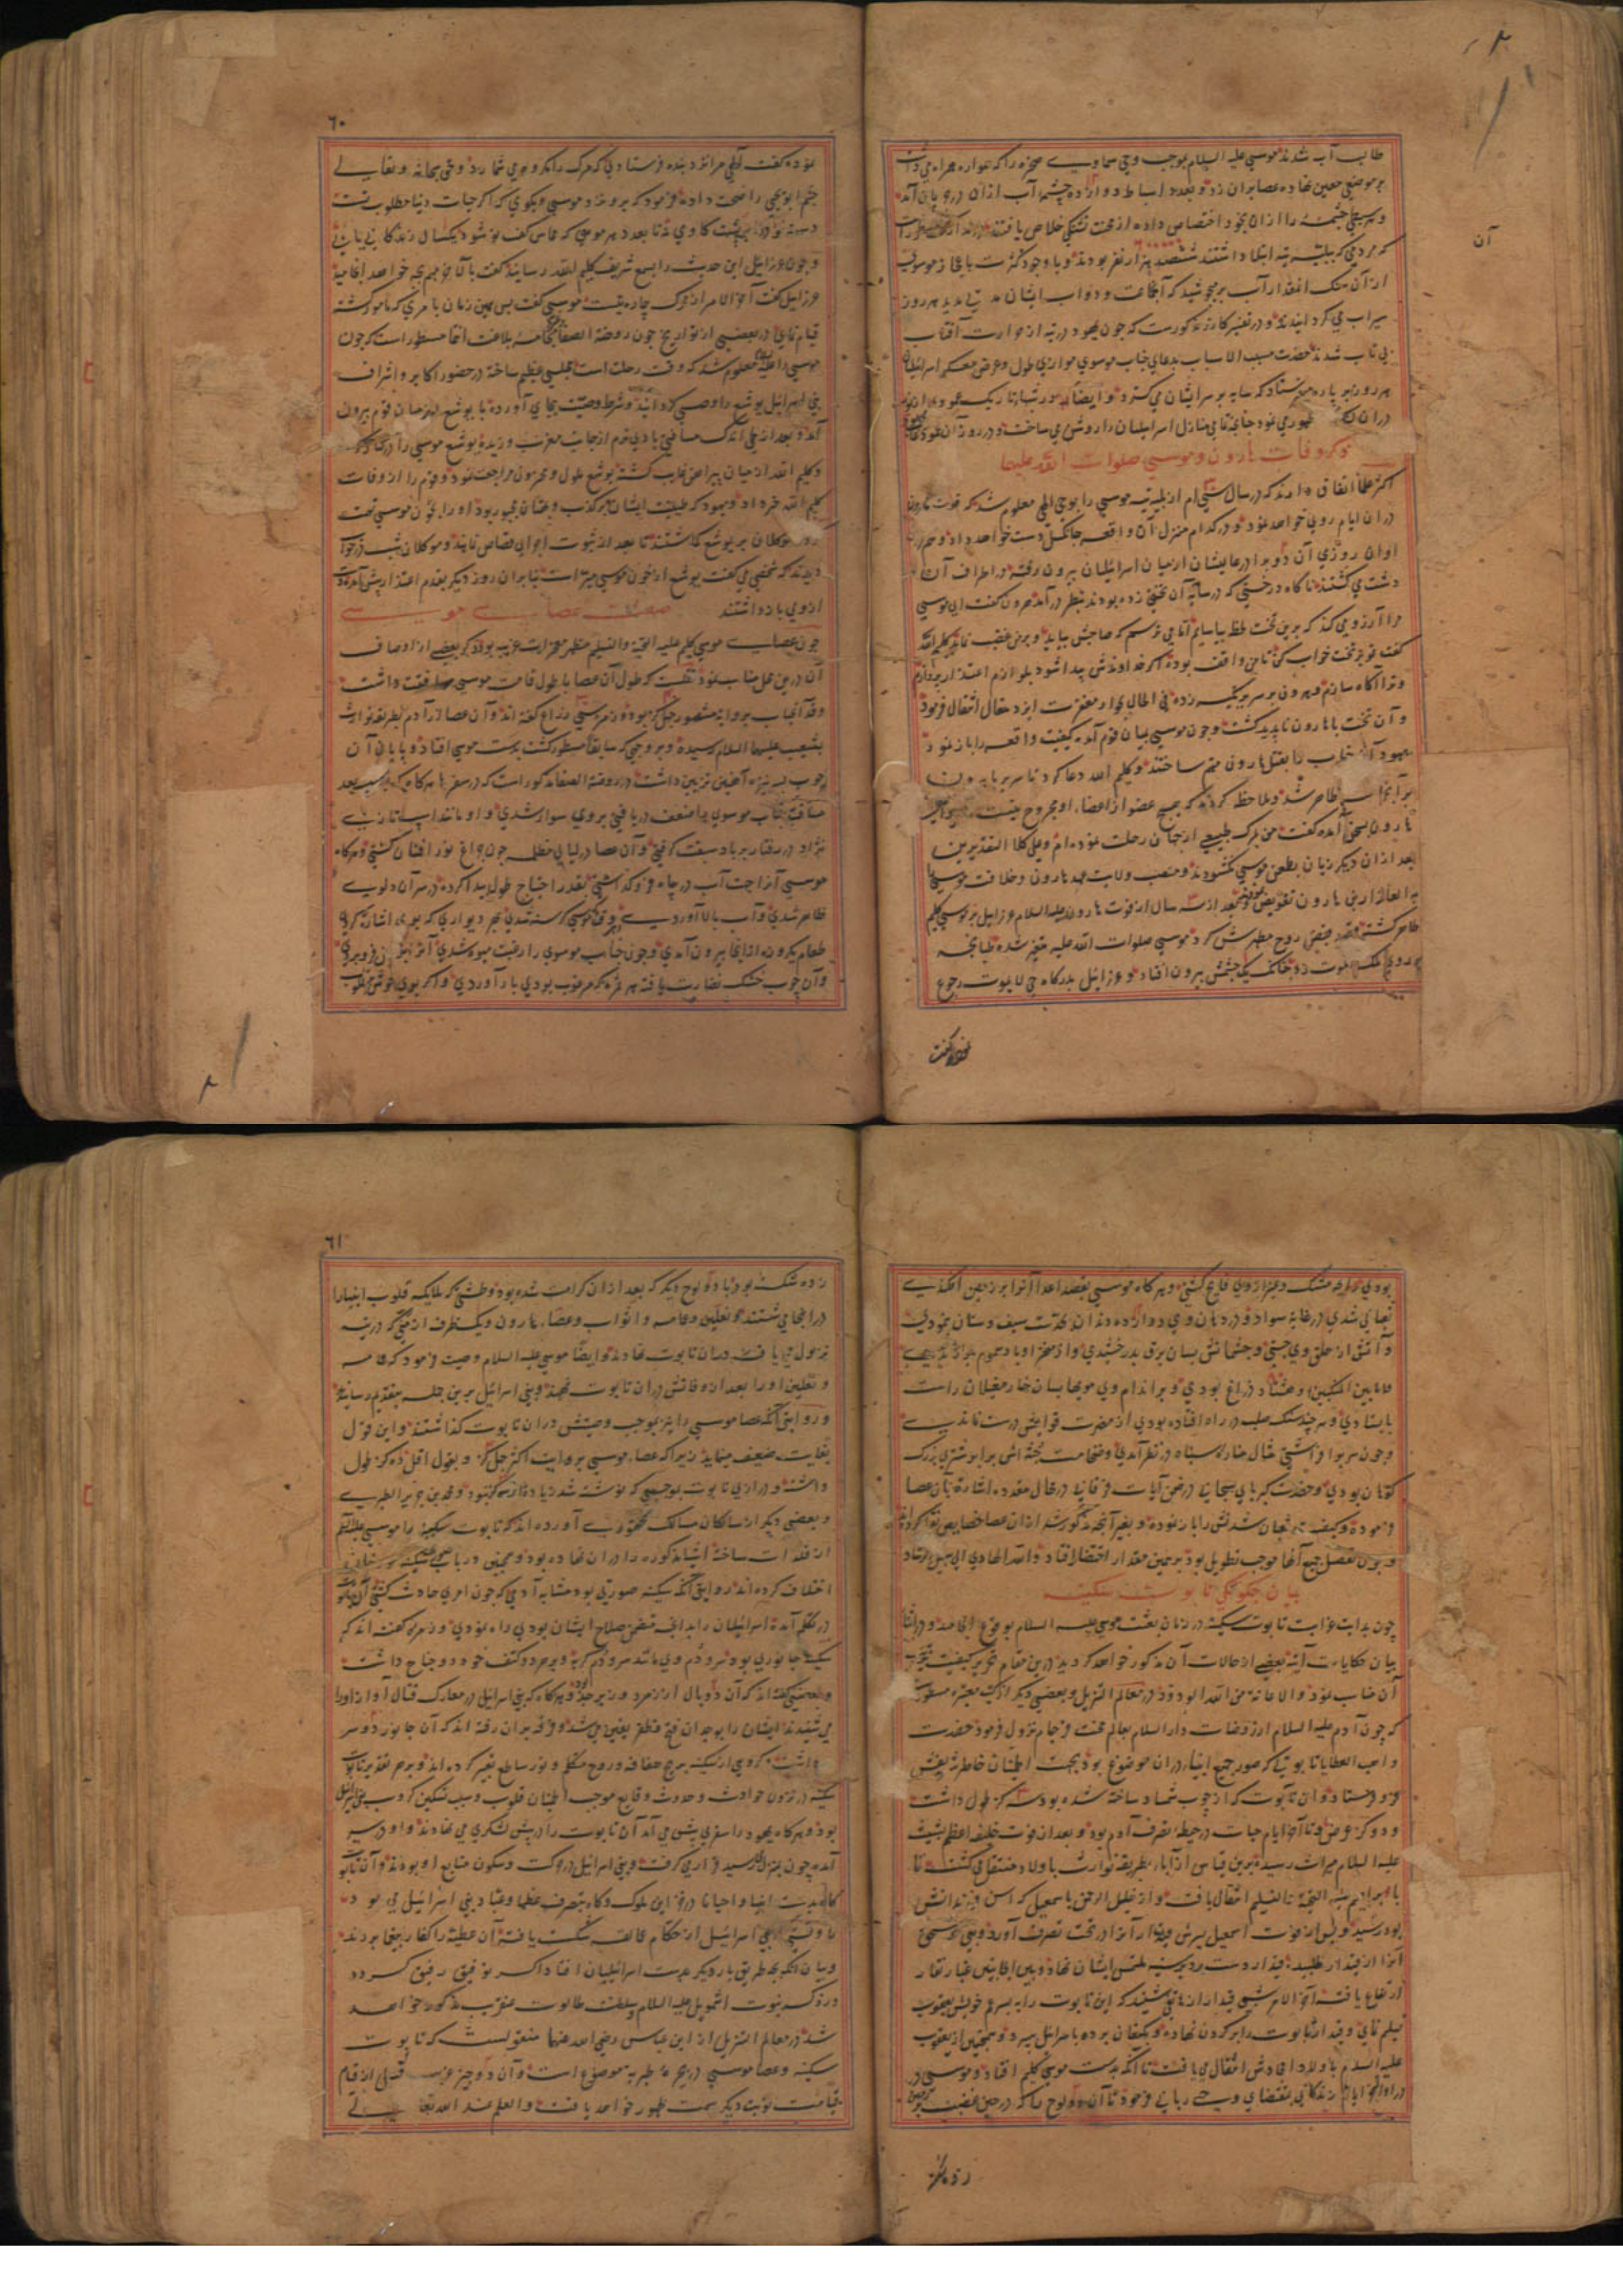 طالب آب شدند موسی علیه السلام بموجب وحی سماوی صخره را که همواره همراه می داشت
بر موضعی معین نهاده عصا بران زد و بعدد اسباط دوازده چشمه آب ازان روی بان آمد
و هر سبطی چشمه را ازان بخود اختصاص داده از محنت تشنگی خلاص یافتند
که مردمی که به تیه ابتلا داشتند ششصد هزار نفر بودند و باوجود کثرت باعجاز موسوی
از آن سنک انقدار آب بر می جوشید که آنجماعت و دواب ایشان هر روز
سیراب می کردانیدند و در تفسیر کازر مذکورست که چون یهود در تیه از حرارت آفتاب
بی تاب شدند حضرت مسبب الاسباب بدعای جناب موسوی موازی طول و عرض معسکر اسرائیلیان
هر روز ابر پاره می فرستاد که سایه بر سر ایشان می کسترد و ایضا در شبهاء تاریک عمودی از نور
دران ظهور می نمود چنانچه تمامی منازل اسرائیلیان را روشن می ساخت و در روز آن عمود
ذکر وفات هارون و موسی صلوات الله علیهما
اکثر علما اتفاق دارند که در سال سی ام از بلیه تیه موسی را بوحی الهی معلوم شد که فوت هارون
دران ایام روی خواهد نمود و در کدام منزل آن واقعه جانکسل دست خواهد داد و هم در
اوان روزی آن دو برادر عالیشان از میان اسرائیلیان بیرون رفته در اطراف آن
دشت می کشتند ناکاه درختی که در سایه آن تختی زده بودند بنظر در آمد هارون کفت ای موسی
مرا آرزو می کند که برین تخت لحظه بیاسایم اما می ترسم که صاحبش بیاید و بر من غضب نماید کلیم الله
کفت تو بر تخت خواب کن تا من واقف بوده اکر خداوندش پیدا شود بلوازم اعتذار پردازم
و ترا آکاه سازم و هارون سر بر تکیه زده فی الحال بجوار مغفرت ایزد متعال انتقال فرمود
و آن تخت با هارون ناپدید کشت و چون موسی بمیان قوم آمده کیفیت واقعه را باز نمود
یهود آنجناب را بقتل هارون متهم ساختند و کلیم الله دعا کرد تا سریر با هارون
بر آنجماعت ظاهر شد و ملاحظه کردند که هیچ عضو از اعضاء او مجروح نیست
هارون بسخن آمده کفت من بمرک طبیعی از جهان رحلت نموده ام و علی کلا التقدیرین
بعد ازان دیکر زبان بطعن موسی نکشودند و منصب ولایت عهد هارون و خلافت موسی
به العازار بن هارون تفویض یافت و بعد از سه سال از فوت هارون علیه السلام عزرائیل بر موسی کلیم
ظاهر کشته قصد قبض روح مطهرش کرد موسی صلوات الله علیه متغیر شده طبانچه
بر روی ملک الموت زد چنانکه یک چشمش بیرون افتاد و عزرائیل بدرکاه حی لا یموت رجوع
نموده کفت
آن
٦٠
نموده کفت الهی مرا نزد بنده فرستادی که مرک را مکروه می شمارد و حق سبحانه و تعالی
چشم ابو یحیی را صحت داده فرمود که برو نزد موسی و بکوی که اکر حیات دنیا مطلوب تست
دست خود را بر پشت کاوی نه تا بعدد هر موئی که مماس کف تو شود یکسال زندکانی یابی
و چون عزرائیل این حدیث را بسمع شریف کلیم الله رسانید کفت بالاخر مهم بچه خواهد انجامید
عزرائیل کفت آخر الامر از مرک چاره نیست موسی کفت پس همین زمان بامری که مامور کشته
قیام نمای و در بعضی از تواریخ چون روضة الصفا بخامه بلاغت انتما مسطور است که چون
موسی را علیه السلام معلوم شد که وقت رحلت است مجلسی عظیم ساخته در حضور اکابر و اشراف
بنی اسرائیل یوشع را وصی کردانید و شرط وصیت بجای آورده با یوشع از میان قوم بیرون
آمد و بعد از طی اندک مسافتی بادی نرم از جانب مغرب وزیده یوشع موسی را در کنار کرفت
و کلیم الله از میان پیراهن غایب کشته یوشع ملول و محزون مراجعت نمود و قوم را از وفات
کلیم الله خبر داد و یهود که طینت ایشان بر کذب و بهتان مجبول بود او را بخون موسی تهمت
موکلان بر یوشع کماشتند تا بعد از ثبوت اجرای قصاص نمایند و موکلان شب در خواب
دیدند که شخصی می کفت یوشع از خون موسی مبرا است بنابران روز دیکر بقدم اعتذار پیش آمده دست
از وی بازداشتند صفت عصای موسی
چون عصای موسی کلیم علیه التحیة والتسلیم مظهر معجزات غریبه بود ذکر بعضی از اوصاف
آن درین محل مناسب نمود نقلست که طول آن عصا با طول قامت موسی موافقت داشت
و قد آنجناب بروایت مشهور چهل کز بوده و زمره سی ذراع کفته اند و آن عصا از آدم بطریق توارث
بشعیب علیهما السلام رسیده و بر وجهی که سابقا مسطور کشت بدست موسی افتاد و پایان آن
چوب بسر نیزه آهنین تزیین داشت و در روضة الصفا مذکور است که در سفر ها هرکاه که بسبب بعد
مسافت جناب موسوی را ضعف دریافتی بروی سوار شدی و او مانند اسب تازی
نژاد در رفتار بر باد سبقت کرفتی و آن عصا در لیالی مظلمه چون چراغ نور افشان کشتی و هرکاه
موسی آنرا جهت آب در چاه فرو کذاشتی بقدر احتیاج طول پیدا کرده و در سر آن دلوی
ظاهر شدی و آب بالا آوردی و وقتی که موسی کرسنه شدی بهر دیواری که بدو اشارت کردی
طعام یکروزه ازانجا بیرون آمدی و چون جناب موسوی را رغبت میوه شدی آنرا بر زمین فرو بردی
و آن چوب خشک نضارت یافته هر ثمره که مرغوب بودی بار آوردی و اکر بوی خوش مطلوب
بودی رایحه مشک و عنبر از وی فایح کشتی و هرکاه موسی بقصد اعدا آنرا بر زمین افکندی
ثعبانی شدی در غایت سواد و در دهان وی دوازده دندان بهیئت سیف و سنان بنمودی
و آتش از حلق وی جستی و چشمانش بسان برق بدرخشیدی و از منخر او باد سموم
ما بین المنکبین او هشتاد ذراع بودی و بر اندام وی مویها بسان خار مغیلان راست
بایستادی و هر چند سنک صلب در راه افتاده بودی از مضرت قوایمش درست نماندی
و چون سر برافراشتی مثال مناره سیاه در نظر آمدی و ضخامت جثه اش برابر شتری بزرک
کوهان بودی و حضرت کبریای سبحانی در ضمن آیات فرقانی در محال متعدده اشارت بآن عصا
فرموده و کیفیت ثعبان شدنش را باز نموده و بغیر آنچه مذکور شد ازان عصا خصایص نقل کرده اند
و چون تفصیل جمیع آنها موجب تطویل بود برهمین مقدار اختصار افتاد والله الهادی الی سبیل الرشاد
بیان چکونکی تابوت سکینه
چون بدایت غرابت تابوت سکینه در زمان بعثت موسی علیه السلام بوقوع انجامید و در اثنا
بیان حکایات آتیه بعضی از حالات آن مذکور خواهد کردید درین مقام تحریر کیفیت
آن مناسب نمود والاعانة من الله الودود در معالم التنزیل و بعضی دیکر از کتب معتبره مسطور است
که چون آدم علیه السلام از روضات دار السلام بعالم محنت فرجام نزول فرمود حضرت
واهب العطایا تابوتی که صور جمیع انبیاء دران موضوع بود بجهت اطمینان خاطر شریفش
فرو فرستاد و آن تابوت که از چوب شمشاد ساخته شده بود سه کز طول داشت
و دو کز عرض و تا آخر ایام حیات در حیطه تصرف آدم بود و بعد از فوت خلیفه اعظم بشیث
علیه السلام میراث رسید و برین قیاس از آباء بطریق توارث باولاد منتقل می کشت تا
بابراهیم علیه التحیة والتسلیم انتقال یافت و از خلیل الرحمن باسمعیل که اسن فرزندانش
بود رسید و پس از فوت اسمعیل پسرش قیدار آنرا در تحت تصرف آورد و بنی اسحق
آنرا از قیدار طلبیدند قیدار دست رد بر سینه ملتمس ایشان نهاد و بین الجانبین غبار نقار
ارتفاع یافت آخر الامر شبی قیدار از هاتفی شنید که این تابوت را به پسر عم خویش یعقوب
تسلیم نمای و قیدار تابوت را بر کردن نهاده و بکنعان برده باسرائیل سپرد و همچنین از یعقوب
علیه السلام باولاد امجادش انتقال می یافت تا آنکه بدست موسی کلیم افتاد و موسی در
در اواخر ایام زندکانی بمقتضای وحی ربانی فرمود تا آن دو لوح را که در حین غضب بر زمین
زده
٦١
زده شکسته بود با دو لوح دیکر که بعد ازان کرامت شده بود و طشتی که ملائکه قلوب انبیا را
درانجا می شستند و نعلین و عمامه و اثواب و عصاء هارون و یک ظرف از منی که در تیه
نزول می یافت دران تابوت نهادند و ایضا موسی علیه السلام وصیت فرمود که عمامه
و نعلین او را بعد از وفاتش دران تابوت نهند و بنی اسرائیل برین جمله بتقدیم رسانیدند
و روایتی آنکه عصا موسی را نیز بموجب وصیتش دران تابوت کذاشتند و این قول
بغایت ضعیف مینماید زیرا که عصاء موسی بروایت اکثر چهل کز و بقول اقل ده کز طول
داشته و درازی تابوت بموجبی که نوشته شد زیاده از سه کز نبود و محمد بن جریر الطبری
و بعضی دیکر از سالکان مسالک سخنوری آورده اند که تابوت سکینه را موسی علیه السلم
از فلذات ساخته اشیاء مذکوره را دران نهاده بود و همچنین در باب سکینه
اختلاف کرده اند روایتی آنکه سکینه صورتی بود مشابه آدمی که چون امری حادث کشتی
در تکلم آمده اسرائیلیان را بدانچه متضمن صلاح ایشان بودی راه نمودی و زمره کفته اند که
سکینه جانوری بود سر و دم وی مانند سر و دم کربه و بر هر دو کتف خود دو جناح داشت
و بعضی کفته اند که آن دو بال از زمرد و زبرجد بود و هرکاه که بنی اسرائیل در معارک قتال آواز او را
می شنیدند ایشان را بوجدان فتح و ظفر یقین می شد و فرقه بران رفته اند که آن جانور دو سر
داشت و کروهی از سکینه بریح هفافه و روح متکلم و نور ساطع تعبیر کرده اند و بر هر تقدیر تابوت
سکینه در نزول حوادث و حدوث وقایع موجب اطمینان قلوب و سبب تسکین کروب بنی اسرائیل
بود و هرکاه یهود را سفری پیش می آمد آن تابوت را در پیش لشکری می نهادند و او در سیر
آمده چون بمنزل رسید قراری کرفت و بنی اسرائیل در حرکت و سکون متابع او بودند و آن تابوت
کاه بدست انبیا و احیانا در خزاین ملوک و کاه بتصرف عظما و عباد بنی اسرائیل می بود
تا وقتی بنی اسرائیل از حکام عمالقه شکست یافته آن عطیه را کفار بیغما بردند
و بیان آنکه بچه طریق بار دیکر بدست اسرائیلیان افتاد اکر توفیق رفیق کردد
در ذکر نبوت اشمویل علیه السلام و سلطنت طالوت عنقریب مذکور خواهد
شد در معالم التنزیل از ابن عباس رضی الله عنهما منقولست که تابوت
سکینه و عصا موسی در بحیره طبریه موضوع است و آن دو چیز عزیز قبل از قیام
قیامت نوبت دیکر سمت ظهور خواهد یافت والعلم عند الله تعالی